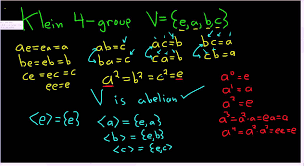 Klein 4-group V={e,a,b,c}
ae=ea=a
be=eb=b
ce=ec=c
ee=e
ab=c
ba=c
ac=b
ca=b
bc=a
cb=a
a²=b²=c²=e
V is abelian ✓
<e>={e}
<a>={e,a}
<b>={e,b}
<c>={e,c}
a⁰=e
a¹=a
a²=e
a³=a²·a=ea=a
a⁴=a²·a²=ee=e